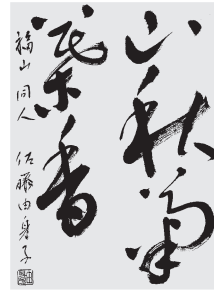 山秋菊
葉香
福山 同人 佐藤由美子